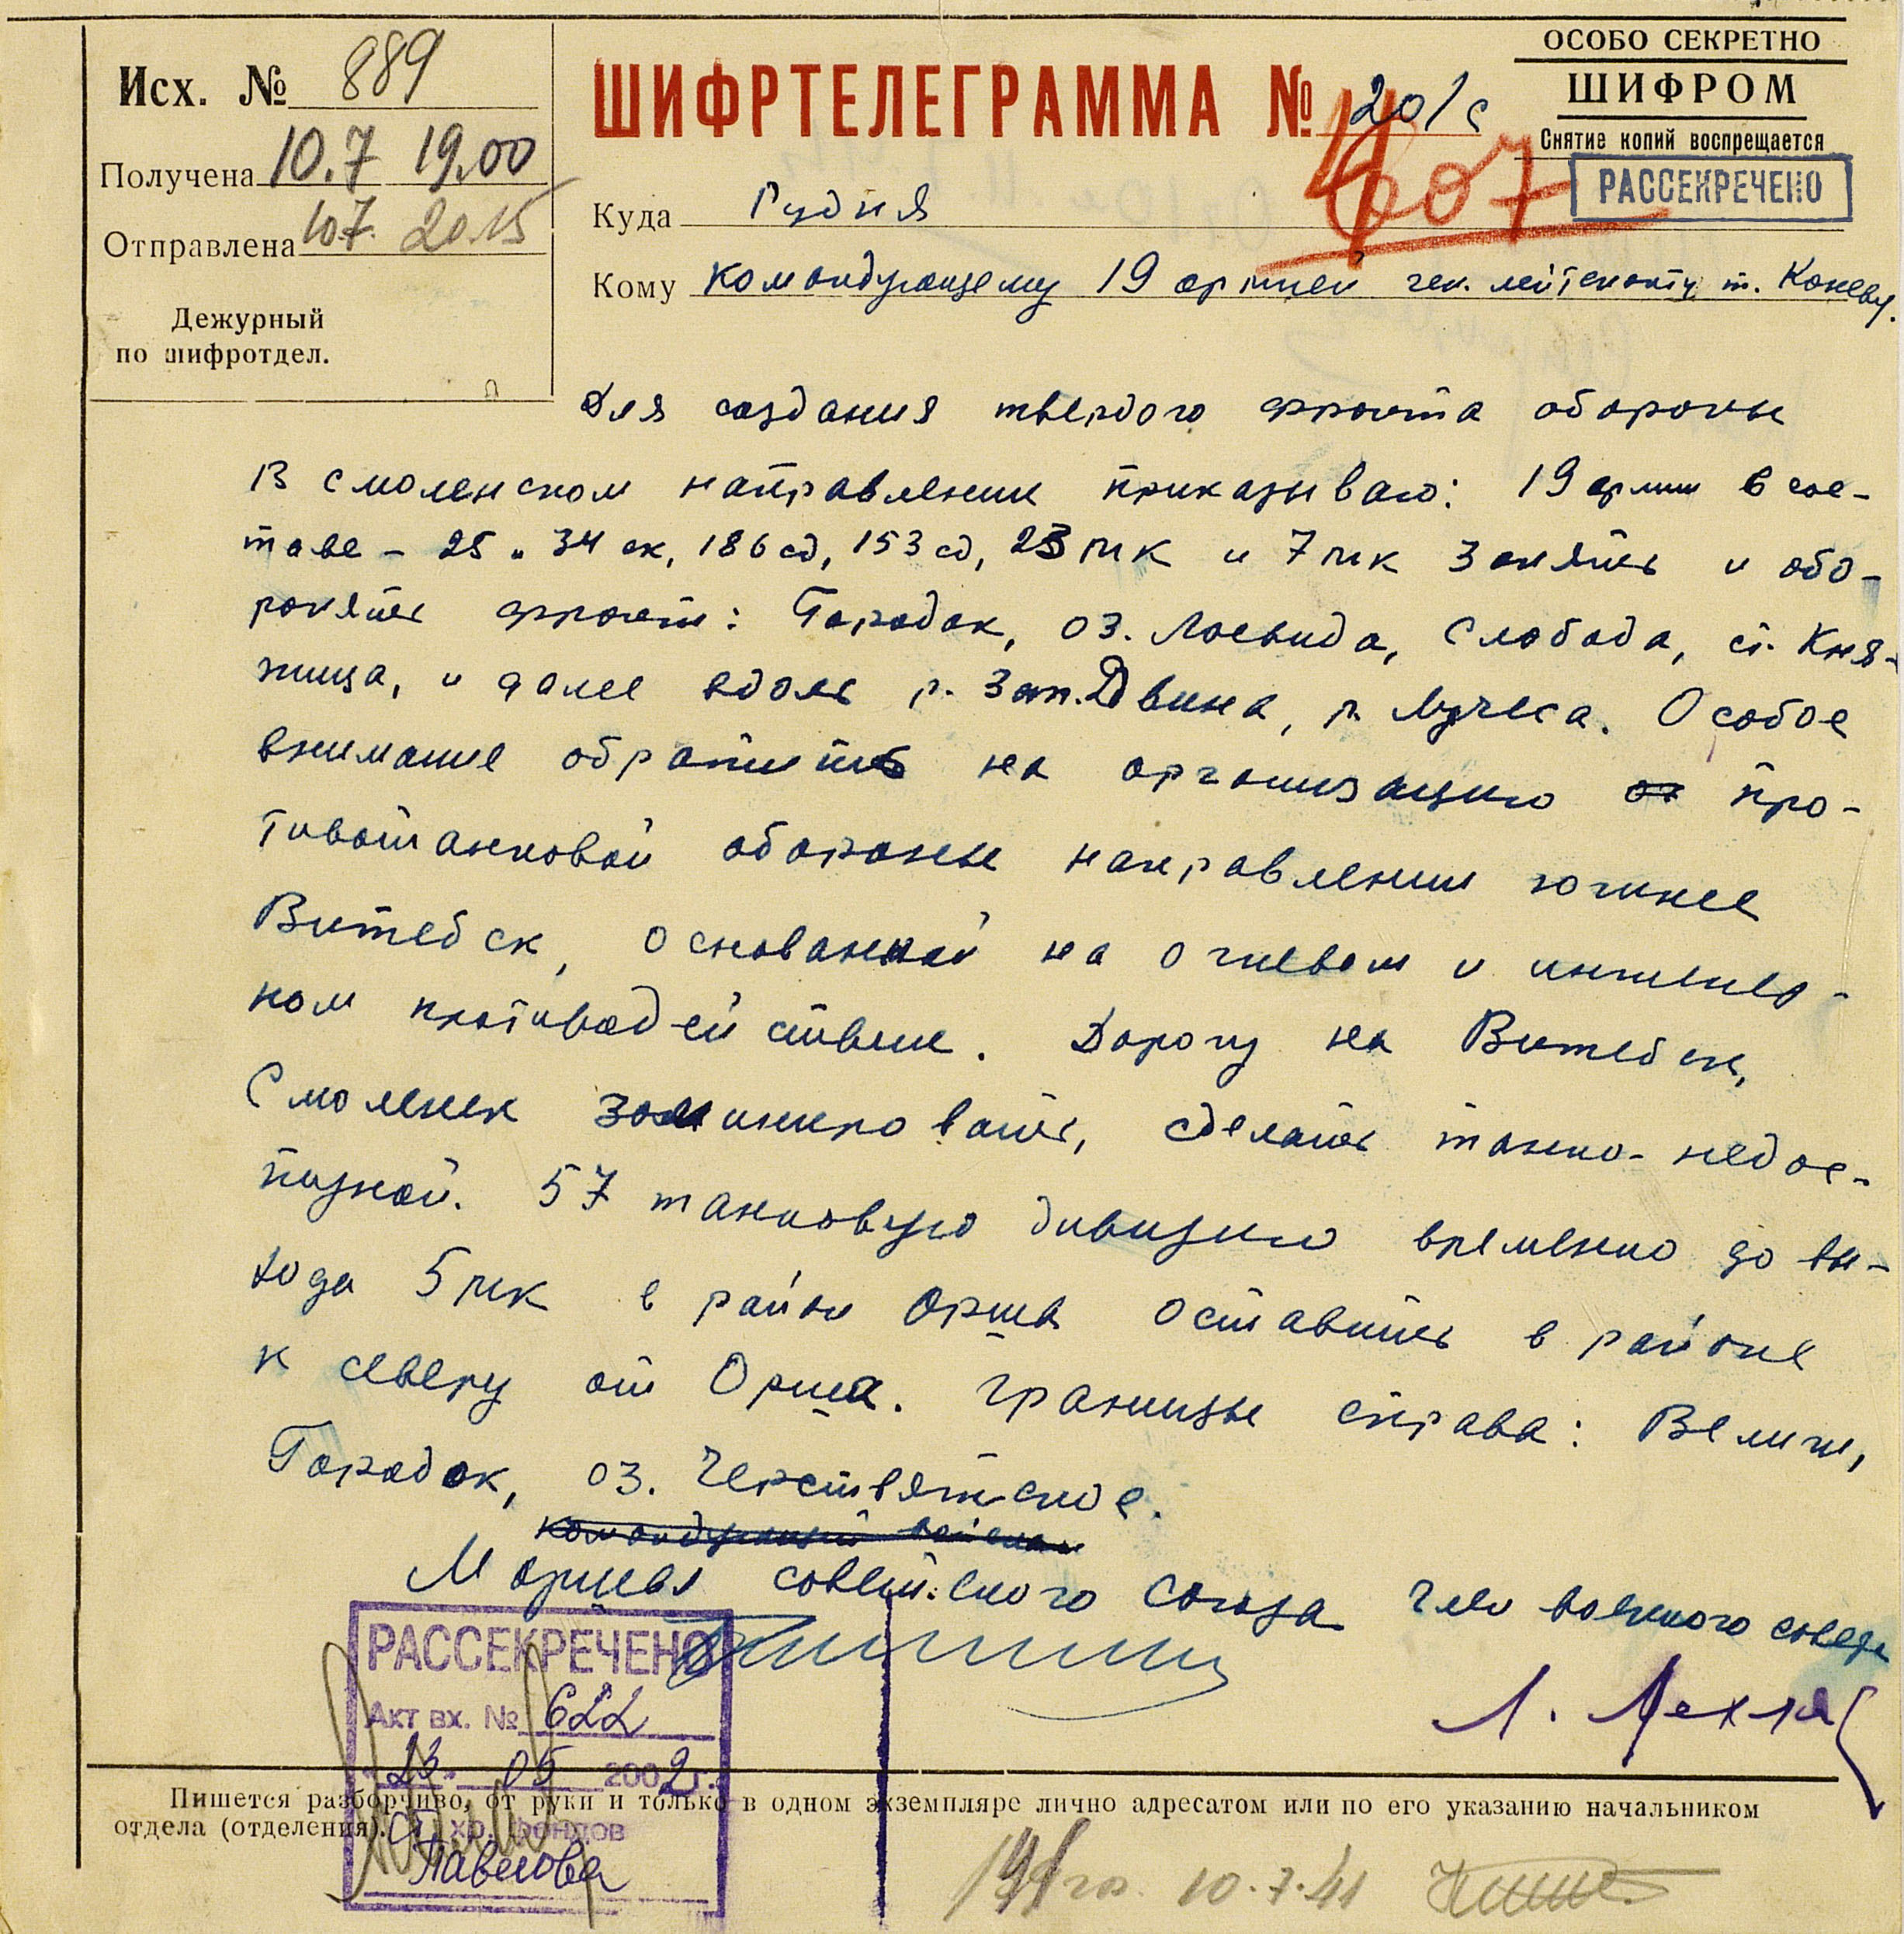 Исх. № 889
Получена 10.7 19.00
Отправлена 10.7. 20.15
Дежурный
по шифротдел.
ШИФРТЕЛЕГРАММА № 20/с
ОСОБО СЕКРЕТНО
ШИФРОМ
Снятие копий воспрещается
РАССЕКРЕЧЕНО
607
Куда Рудня
Кому командующему 19 армией ген. лейтенанту т. Коневу.
Для создания твердого фронта обороны
в смоленском направлении приказываю: 19 армии в сос-
таве - 25 и 34 ск, 186 сд, 153 сд, 23 мк и 7 мк занять и обо-
ронять фронт: Городок, оз. Лосвида, Слобода, ст. Кня-
жица, и далее вдоль р. Зап. Двина, р. Лучеса. Особое
внимание обратить на организацию про-
тивотанковой обороны направлении южнее
Витебск, основанной на огневом и инженер-
ном противодействии. Дорогу на Витебск,
Смоленск заминировать, сделать танко-недос-
тупной. 57 танковую дивизию временно до вы-
хода 5 мк в район Орша оставить в районе
к северу от Орша. Границы справа: Велиж,
Городок, оз. Черствятское.
Командующий войсками
Маршал советского союза Член военного совета
Л. Мехлис
РАССЕКРЕЧЕНО
Акт вх. № 622
"23" 05 2002 г.
хр. фондов
Павлова
Пишется разборчиво, от руки и только в одном экземпляре лично адресатом или по его указанию начальником
отдела (отделения).
10.7.41